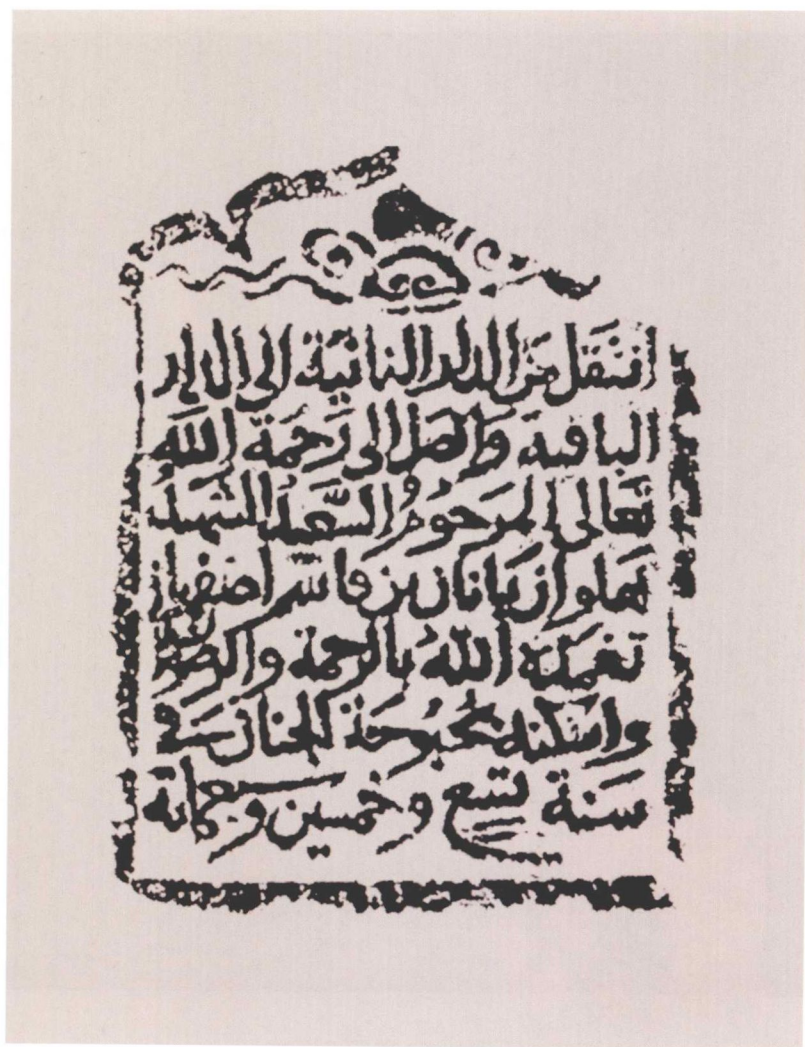 انتقل من الدار الفانية الى الدار
الباقية واتصل الى رحمة الله
تعالى المرحوم السعيد الشهيد
بن قاسم اصفهاني
تغمده الله بالرحمة والرضوان
واسكنه بحبوحة الجنان في
سنة تسع وخمسين وسبعمائة